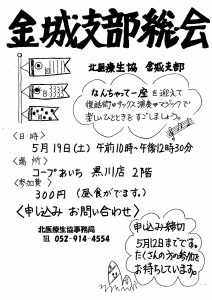 金城支部総会
北医療生協 金城支部
なんちゃって一座を迎えて
復話術・サックス演奏・マジックで
楽しいひとときをすごしましょう。
〈日時〉
5月19日(土)午前10時~午後12時30分
〈場所〉
コープあいち 黒川店 2階
〈参加費〉
300円(昼食がでます。)
〈申し込み お問い合わせ〉
北医療生協事務局
Tel 052-914-4554
申し込み締切
5月12日までです。
たくさんの方の参加を
お待ちしています。